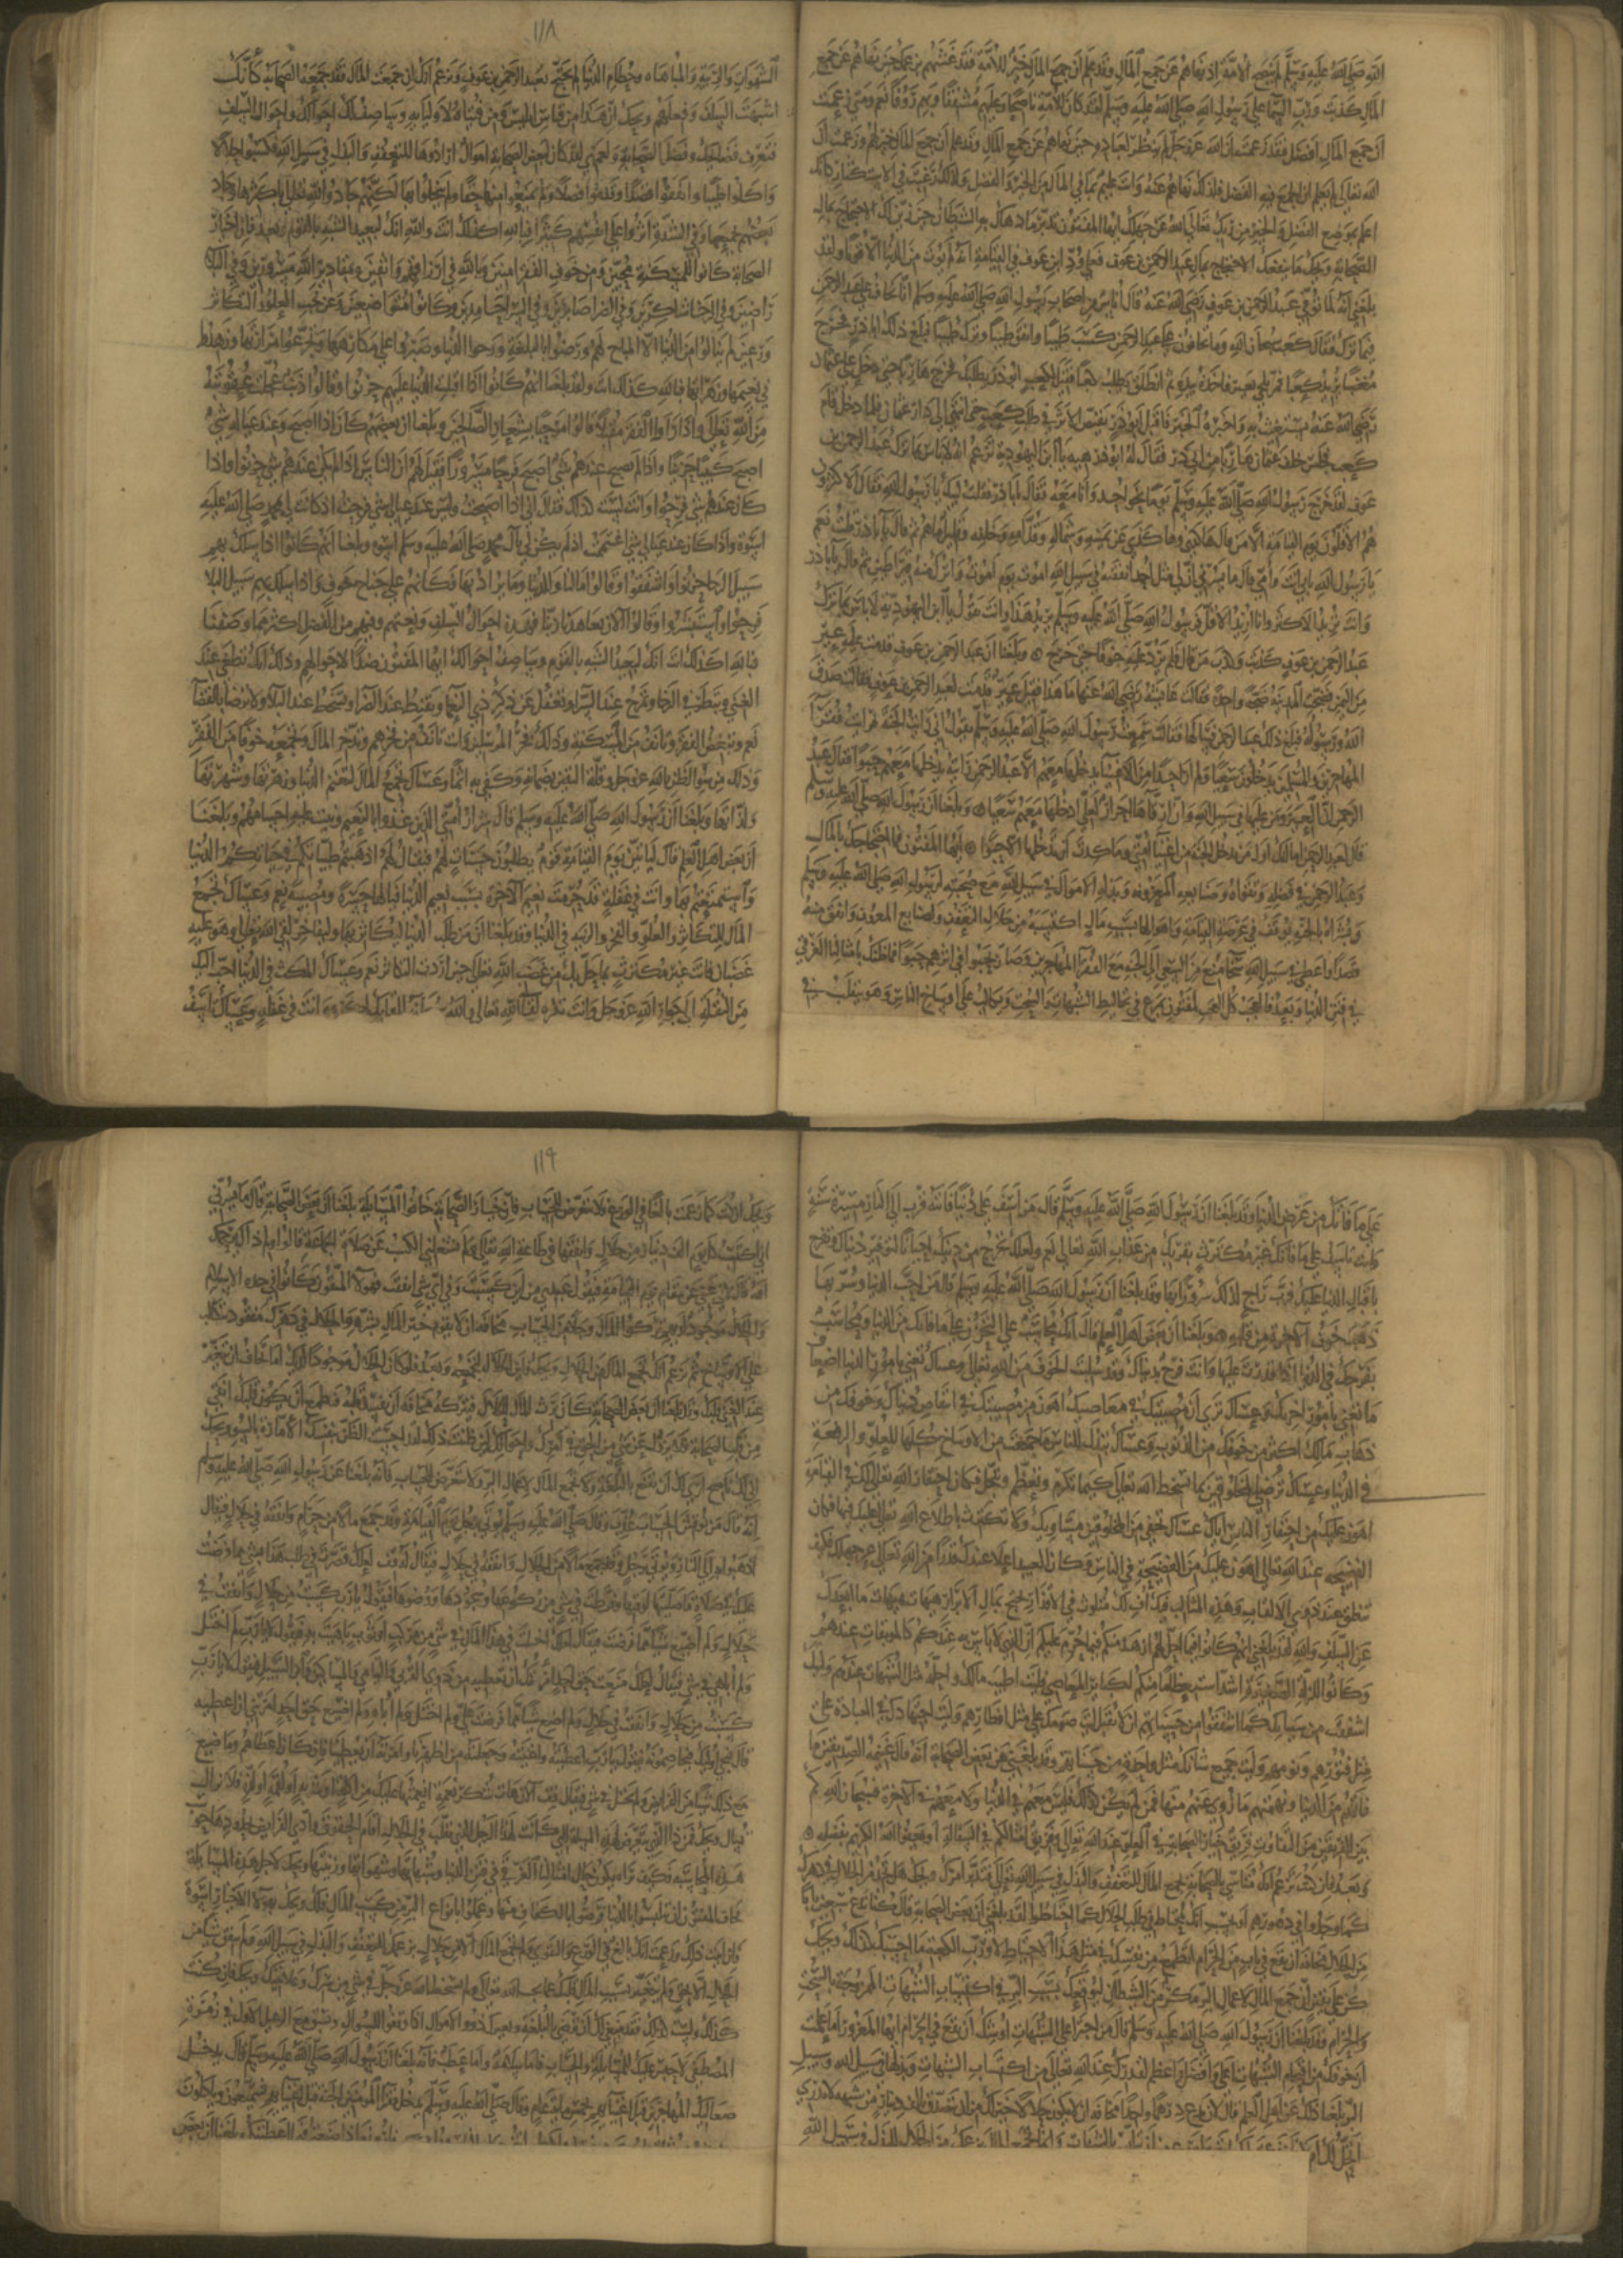 الله صلى الله عليه وسلم لم ينصح الامة اذ نهاهم عن جمع المال وقد علم ان جمع المال خير للامة فقد غشهم بزعمك حين نهاهم عن جمع
المال كذبت ورب السماء على رسول الله صلى الله عليه وسلم لقد كان للامة ناصحا وعليهم مشفقا وبهم رؤوفا نعم ومتى زعمت
ان جمع المال افضل فقد زعمت ان الله عز وجل لم ينظر لعباده حين نهاهم عن جمع المال وقد علم ان جمع المال خير لهم وزعمت ان
الله تعالى لم يعلم ان الجمع فيه الفضل فلذلك نهاهم عنه وانت عليم بما في المال من الخير والفضل ولذلك رغبت في الاستكثار كانك
اعلم بموضع الفضل والخير من ربك تعالى الله عن جهلك ايها المفتون تدبر ما دهاك به الشيطان حين زين لك الاحتجاج بمال
الصحابة ويحك ما ينفعك الاحتجاج بمال عبد الرحمن بن عوف فعلى ود ابن عوف في القيامة انه لم يؤت من الدنيا الا قوتا ولقد
بلغني انه لما توفي عبد الرحمن بن عوف رضي الله عنه قال اناس من اصحاب رسول الله صلى الله عليه وسلم انا نخاف على عبد الرحمن
فيما ترك فقال كعب سبحان الله وما تخافون على عبد الرحمن كسب طيبا وانفق طيبا وترك طيبا فبلغ ذلك ابا ذر فخرج
مغضبا يريد كعبا فمر بلحي بعير فاخذه بيده ثم انطلق يطلب كعبا فقيل لكعب ان ابا ذر يطلبك فخرج هاربا حتى دخل على عثمان
رضي الله عنه يستغيث به واخبره الخبر فاقبل ابو ذر يقتص الاثر في طلب كعب حتى انتهى الى دار عثمان فلما دخل قام
كعب فجلس خلف عثمان هاربا من ابي ذر فقال له ابو ذر هيه يا ابن اليهودية تزعم ان لا باس بما ترك عبد الرحمن بن
عوف لقد خرج رسول الله صلى الله عليه وسلم يوما نحو احد وانا معه فقال يا ابا ذر فقلت لبيك يا رسول الله فقال الاكثرون
هم الاقلون يوم القيامة الا من قال هكذا وهكذا عن يمينه وشماله وقدامه وخلفه وقليل ما هم ثم قال يا ابا ذر قلت نعم
يا رسول الله بابي انت وامي قال ما يسرني ان لي مثل احد انفقه في سبيل الله اموت يوم اموت واترك منه قيراطين ثم قال يا ابا ذر
وانت تريد الاكثر وانا اريد الاقل فرسول الله صلى الله عليه وسلم يريد هذا وانت تقول يا ابن اليهودية لا باس بما ترك
عبد الرحمن بن عوف كذبت وكذب من قال فلم يرد عليه خوفا حتى خرج وبلغنا ان عبد الرحمن بن عوف قدمت عليه عير
من اليمن فضجت المدينة ضجة واحدة فقالت عائشة رضي الله عنها ما هذا فقيل عير قدمت لعبد الرحمن بن عوف قالت صدق
الله ورسوله فبلغ ذلك عبد الرحمن فسالها فقالت سمعت رسول الله صلى الله عليه وسلم يقول اني رايت الجنة فرايت فقرا
المهاجرين والمسلمين يدخلون سعيا ولم ار احدا من الاغنيا يدخلها معهم الا عبد الرحمن رايته يدخلها معهم حبوا فقال عبد
الرحمن ان العير وما عليها في سبيل الله وان ارقاها احرار لعلي ادخلها معهم سعيا وبلغنا ان رسول الله صلى الله عليه وسلم
قال لعبد الرحمن اما انك اول من يدخل الجنة من اغنيا امتي وما كدت ان تدخلها الا حبوا ايها المفتون فما احتجاجك بالمال
وهذا عبد الرحمن في فضله وتقواه وصنايعه المعروف وبذله الاموال في سبيل الله مع صحبته لرسول الله صلى الله عليه وسلم
وبشراه بالجنة يوقف في عرصة القيامة واهوالها بسبب مال اكتسبه من حلال للتعفف ولصنايع المعروف وانفق منه
قصدا واعطى في سبيل الله سمحا منع من السعي الى الجنة مع الفقرا المهاجرين وصار يحبو في اثرهم حبوا فما ظنك بامثالنا الغرقى
في فتن الدنيا وبعد فالعجب كل العجب لمفتون يمرغ في تخاليط الشبهات والسحت ويتكالب على اوساخ الناس وهو يتقلب في
١١٨
الشهوات والزينة والمباهاة وحطام الدنيا ثم يحتج بعبد الرحمن بن عوف وتزعم انك ان جمعت المال فقد جمعه الصحابة كانك
اشبهت السلف وفعلهم ويحك ان هذا من قياس ابليس ومن فتياه لاوليايه وساصف لك احوالك واحوال السلف
فتعرف فضايحك وفضل الصحابة ولعمري لقد كان لبعض الصحابة اموال ارادوها للتعفف والبذل في سبيل الله فكسبوا حلالا
واكلوا طيبا وانفقوا قصدا وقدموا فضلا ولم يمنعوا منها حقا ولم يبخلوا بها لكنهم جادوا لله تعالى باكثرها وجاد
بعضهم بجميعها وفي الشدة اثروا على انفسهم كثيرا فبالله اكذلك انت والله انك لبعيد الشبه بالقوم وبعد فان اخيار
الصحابة كانوا للمسكنة محبين ومن خوف الفقر امنين وبالله في ارزاقهم واثقين وبمقادير الله مسرورين وفي البلا
راضين وفي الرخا شاكرين وفي الضرا صابرين وفي السرا حامدين وكانوا لله متواضعين وعن حب العلو والتكاثر
ورعين لم ينالوا من الدنيا الا المباح لهم ورضوا بالبلغة وزجوا الدنيا وصبروا على مكارهها وتجرعوا مرارتها وزهدوا
في نعيمها وزهراتها فبالله كذلك انت ولقد بلغنا انهم كانوا اذا اقبلت الدنيا عليهم حزنوا وقالوا ذنب عجلت عقوبته
من الله تعالى واذا راوا الفقر مقبلا قالوا مرحبا بشعار الصالحين وبلغنا ان بعضهم كان اذا اصبح وعند عياله شي
اصبح كئيبا حزينا واذا لم يصبح عندهم شي اصبح فرحا مسرورا فقيل له ان الناس اذا لم يكن عندهم شي حزنوا واذا
كان عندهم شي فرحوا وانت لست كذلك فقال اني اذا اصبحت وليس عند عيالي شي فرحت اذ كان لي بمحمد صلى الله عليه
اسوة واذا كان عند عيالي شي اغتممت اذ لم يكن لي بال محمد صلى الله عليه وسلم اسوة وبلغنا انهم كانوا اذا سلك بهم
سبيل الرخا حزنوا واشفقوا وقالوا ما لنا وللدنيا وما يراد بها فكانهم على جناح خوف واذا سلك بهم سبيل البلا
فرحوا واستبشروا وقالوا الان تعاهدنا ربنا فهذه احوال السلف ونعتهم وفيهم من الفضل اكثر مما وصفنا
فبالله اكذلك انت انك لبعيد الشبه بالقوم وساصف احوالك ايها المفتون ضدا لاحوالهم وذلك انك تطغى عند
الغنى وتبطر في الرخا وتمرح عند السرا وتغفل عن شكر ذي النعما وتقنط عند الضرا وتسخط عند البلا ولا ترضى بالقضا
نعم وتبغض الفقر وتانف من المسكنة وذلك فخر المرسلين وانت تانف من فخرهم وتدخر المال وتجمعه خوفا من الفقر
وذلك من سو الظن بالله عز وجل وقلة اليقين بضمانه وكفى به اثما وعساك تجمع المال لتنعم الدنيا وزهرتها وشهواتها
ولذاتها وبلغنا ان رسول الله صلى الله عليه وسلم قال شرار امتي الذين غذوا بالنعيم ونبتت عليه اجسامهم وبلغنا
ان بعض اهل العلم قال ليأتين يوم القيامة قوم يطلبون حسنات لهم فيقال لهم اذهبتم طيباتكم في حياتكم الدنيا
واستمتعتم بها وانت في غفلة قد حرمت نعيم الاخرة بسبب نعيم الدنيا فيا لها حسرة ومصيبة نعم وعساك تجمع
المال للتكاثر والعلو والفخر والزينة في الدنيا وقد بلغنا ان من طلب الدنيا ليكاثر بها وليفاخر لقي الله تعالى وهو عليه
غضبان فانت غير مكترث بما حل بك من غضب الله تعالى حين اردت التكاثر نعم وعساك المكث في الدنيا احب اليك
من النقلة الى جوار الله عز وجل وانت تكره لقا الله تعالى والله للقايك اكره وانت في غفلة وعساك تاسف
على ما فاتك من عرض الدنيا وقد بلغنا ان رسول الله صلى الله عليه وسلم قال من اسف على دنيا فاتته قرب الى النار مسيرة سنة
وانت تاسف على ما فاتك غير مكترث بقربك من عذاب الله تعالى نعم ولعلك تخرج من دينك احيانا لتوفير دنياك وتفرح
باقبال الدنيا عليك وترتاح لذلك سرورا بها وقد بلغنا ان رسول الله صلى الله عليه وسلم قال من احب الدنيا وسر بها
ذهب خوف الاخرة من قلبه وبلغنا ان بعض اهل العلم قال انك تحاسب على التحزن على ما فاتك من الدنيا وتحاسب
بفرحك في الدنيا اذا قدرت عليها وانت فرح بدنياك وقد سلبت الخوف من الله تعالى وعساك تعنى بامور الدنيا اضعاف
ما تعنى بامور اخرتك وعساك ترى ان مصيبتك في معاصيك اهون من مصيبتك في انتقاص دنياك وخوفك من
ذهاب مالك اكثر من خوفك من الذنوب وعساك تبذل للناس ما جمعت من الاوساخ كلها للعلو والرفعة
في الدنيا وعساك ترضي المخلوقين بما يسخط الله تعالى كيما تكرم وتعظم وتبجل فكان احتقار الله تعالى لك في القيامة
اهون عليك من احتقار الناس اياك عساك تخفي من المخلوقين مساويك ولا تكترث باطلاع الله تعالى عليك فيها فكان
الفضيحة عند الله تعالى اهون عليك من الفضيحة في الناس وكان العبيد اعلا عندك قدرا من الله تعالى عن جهلك فكيف
تنطق عند ذوي الالباب وهذه المثالب فيك اف لك متلوث في الاقذار تحتج بمال الابرار هيهات هيهات ما ابعدك
عن السلف والله لقد بلغني انهم كانوا فيما احل لهم ازهد منكم فيما حرم عليكم ان الذي لا باس به عندكم كالموبقات عندهم
وكانوا للزلة الصغيرة اشد استعظاما منكم لكباير المعاصي فليت اطيب مالك واحله مثل شبهات اموالهم وليتك
اشفقت من سيئاتك كما اشفقوا من حسناتهم ان لا تقبل ليت صومك على مثل افطارهم وليت اجتهادك في العبادة على
مثل فتورهم ونومهم وليت جميع حسناتك مثل واحدة من حسناتهم وقد بلغني عن بعض الصحابة انه قال غنيمة الصديقين ما
فاتهم من الدنيا ونهمتهم ما زوي عنهم منها فمن لم يكن كذلك فليس معهم في الدنيا ولا معهم في الاخرة فسبحان الله كم
بين الفريقين من التفاوت فريق خيار الصحابة في العلو عند الله تعالى وفريق امثالكم في السفالة او يعفو الله الكريم بفضله
وبعد فان زعمت انك متاس بالصحابة بجمع المال للتعفف والبذل في سبيل الله تعالى فتدبر امرك ويحك هل تجد من الحلال في دهرك
كما وجدوا في دهورهم او تحسب انك محتاط في طلب الحلال كما احتاطوا لقد بلغني ان بعض الصحابة قال كنا ندع سبعين بابا
من الحلال مخافة ان نقع في باب من الحرام افتطمع من نفسك في مثل هذا الاحتياط لا ورب الكعبة ما احسبك كذلك ويحك
كن على يقين ان جمع المال لاعمال البر مكر من الشيطان ليوقعك بسبب البر في اكتساب الشبهات الممزوجة بالسحت
والحرام وقد بلغنا ان رسول الله صلى الله عليه وسلم قال من اجترا على الشبهات اوشك ان يقع في الحرام ايها المغرور اما علمت
ان خوفك من اقتحام الشبهات اعلى وافضل واعظم لقدرك عند الله تعالى من اكتساب الشبهات وبذلها في سبيل الله وسبيل
البر بلغنا ذلك عن بعض اهل العلم قال لان تدع درهما واحدا مخافة ان لا يكون حلالا خير لك من ان تتصدق بالف دينار من شبهة لا تدري
ايحل لك ام
١١٩
ويحك ان كنت كما زعمت بالغا في الورع فلا تتعرض للحساب فان خيار الصحابة خافوا المسايلة بلغنا ان بعض الصحابة قال ما يسرني
اني اكتسب كل يوم الف دينار من حلال وانفقها في طاعة الله تعالى ولم يشغلني الكسب عن صلاة الجماعة قالوا ولم ذاك يرحمك
الله قال لاني غني عن مقام يوم القيامة فيقول عبدي من اين كسبت وفي اي شي انفقت فهولا المتقون كانوا في جدة الاسلام
والحلال موجود لديهم تركوا المال وجلا من الحساب مخافة ان لا يقوم خير المال بشره وانت والحلال في دهرك مفقود تتكالب
على الاوساخ ثم تزعم انك تجمع المال من الحلال ويحك واين الحلال فتجمعه وبعد فلو كان الحلال موجودا لديك اما تخاف ان يتغير
عند الغنى قلبك وقد بلغنا ان بعض الصحابة كان يرث المال الحلال فيتركه مخافة ان يفسد قلبه افتطمع ان يكون قلبك انقى
من قلب الصحابة فلا يزول عن شي من الحق في امرك واحوالك لين ظننت ذلك لقد احسنت الظن بنفسك الامارة بالسو ويحك
اني لك ناصح ارى لك ان تقنع بالبلغة ولا تجمع المال لاعمال البر ولا تتعرض للحساب فانه بلغنا عن رسول الله صلى الله عليه وسلم
انه قال من نوقش الحساب عذب وقال صلى الله عليه وسلم يوتى برجل يوم القيامة وقد جمع مالا من حرام وانفقه في حلال فيقال
اذهبوا به الى النار ويوتى برجل قد جمع مالا من حلال وانفقه في حلال فيقال له قف لعلك قصرت في طلب هذا بشي مما فرضت
عليك من صلاة لم تصلها لوقتها وفرطت في شي من ركوعها وسجودها ووضوئها فيقول لا يا رب كسبت من حلال وانفقت في
حلال ولم اضيع شيا مما فرضت فيقال لعلك اختلت في هذا المال في شي من مركب او ثوب باهيت به فيقول لا يا رب لم اختل
ولم اباهي في شي فيقال لعلك منعت حق احد امرتك ان تعطيه من ذوي القربى واليتامى والمساكين وابن السبيل فيقول لا يا رب
كسبت من حلال وانفقت في حلال ولم اضيع شيا مما فرضت علي ولم اختل ولم اباهي ولم اضيع حق احد امرتني ان اعطيه
قال فيجي اوليك فيخاصمونه فيقولون يا رب اعطيته واغنيته وجعلته بين اظهرنا وامرته ان يعطينا فان كان اعطاهم وما ضيع
مع ذلك شيا من الفرايض ولم يختل في شي فيقال قف الان هات شكر نعمة انعمتها عليك من اكلة او شربة او لقمة او لذة فلا يزال يسال
ويحك فمن ذا الذي يتعرض لهذه المسايلة التي كانت لهذا الرجل الذي تقلب في الحلال وقام بالحقوق وادى الفرايض بحدودها حوسب
هذه المحاسبة فكيف ترى يكون حال امثالنا الغرقى في فتن الدنيا وشبهاتها وشهواتها وزينتها ويحك لاجل هذه المسايلة
خاف المتقون ان يتلبسوا بالدنيا فرضوا بالكفاف منها وعملوا بانواع البر من كسب المال فلك ويحك بهولا الاخيار اسوة
فان ابيت ذلك وزعمت انك بالغ في الورع والتقوى ولم تجمع المال الا من حلال بزعمك للتعفف والبذل في سبيل الله ولم تنفق شيا من
الحلال الا بحق ولم يتغير بسبب المال قلبك عما يحب الله تعالى ولم تسخط الله عز وجل في شي من سرك وعلانيتك ويحك فان كنت
كذلك ولست كذلك فقد ينبغي لك ان ترضى بالبلغة وتعتزل ذوي الاموال اذا وقفوا للسوال وتسبق مع الرعيل الاول في زمرة
المصطفى لا حبس عليك للمسايلة والحساب فاما سلامة واما عطب فانه بلغنا ان رسول الله صلى الله عليه وسلم قال يدخل
صعاليك المهاجرين قبل اغنيائهم بخمس ماية عام وقال صلى الله عليه وسلم يدخل فقرا المومنين الجنة قبل اغنيائهم فيتمتعون وياكلون